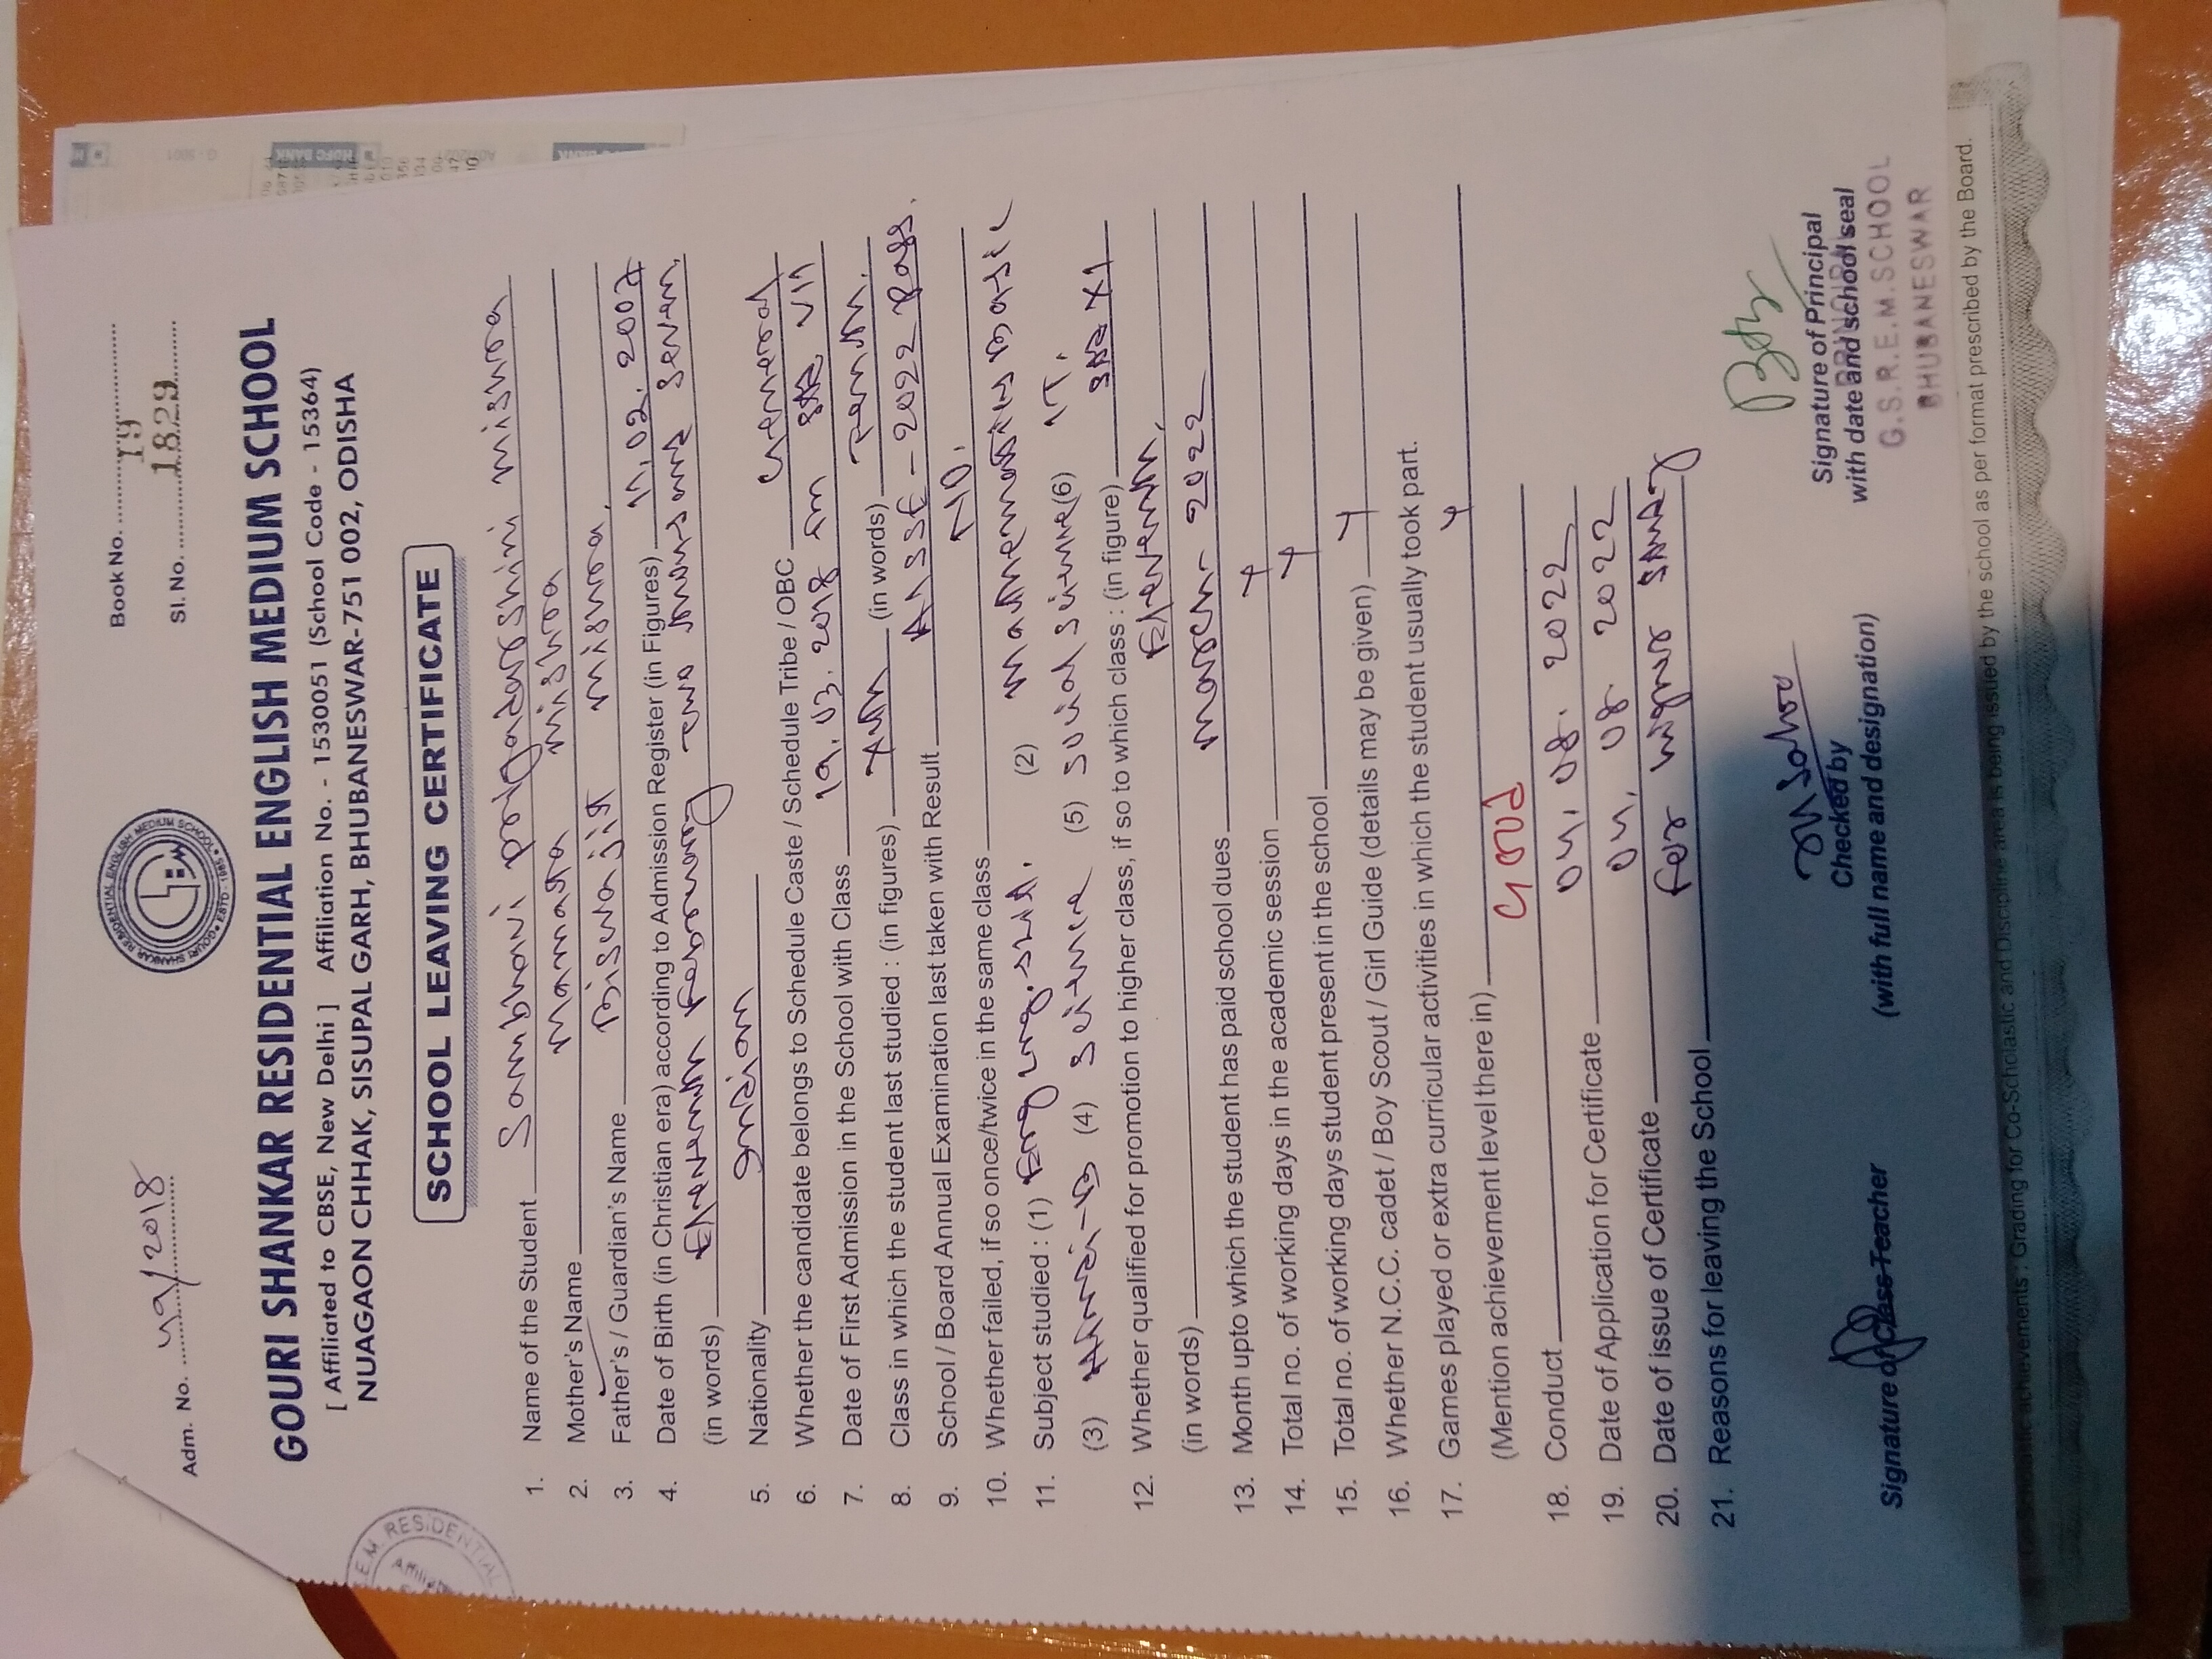 Book No. 19
Adm. No. 49/2018 Sl. No. 1829
GOURI SHANKAR RESIDENTIAL ENGLISH MEDIUM SCHOOL
[ Affiliated to CBSE, New Delhi ] Affiliation No. - 1530051 (School Code - 15364)
NUAGAON CHHAK, SISUPAL GARH, BHUBANESWAR-751 002, ODISHA
SCHOOL LEAVING CERTIFICATE
1. Name of the Student Sambhavi priyadarshini mishra
2. Mother's Name mamata mishra
3. Father's / Guardian's Name Biswajit mishra.
4. Date of Birth (in Christian era) according to Admission Register (in Figures) 11.02.2007
(in words) Eleventh February two thousand seven.
5. Nationality Indian
6. Whether the candidate belongs to Schedule Caste / Schedule Tribe / OBC General
7. Date of First Admission in the School with Class 19.03.2018 in VII
8. Class in which the student last studied : (in figures) Xth (in words) Tenth.
9. School / Board Annual Examination last taken with Result AISSE - 2022 Pass.
10. Whether failed, if so once/twice in the same class NO.
11. Subject studied : (1) Eng Lng. & Lit. (2) mathematics Basic
(3) Hindi-B (4) Science (5) Social science (6) IT.
12. Whether qualified for promotion to higher class, if so to which class : (in figure) XI
(in words) Eleventh.
13. Month upto which the student has paid school dues March 2022
14. Total no. of working days in the academic session
15. Total no. of working days student present in the school
16. Whether N.C.C. cadet / Boy Scout / Girl Guide (details may be given)
17. Games played or extra curricular activities in which the student usually took part.
(Mention achievement level there in)
18. Conduct Good
19. Date of Application for Certificate 04.08.2022
20. Date of issue of Certificate 04.08.2022
21. Reasons for leaving the School For higher study
Signature of Class Teacher
Checked by
(with full name and designation)
Signature of Principal
with date and school seal
PRINCIPAL
G.S.R.E.M.SCHOOL
BHUBANESWAR
E.M. RESIDENTIAL
HDFC BANK
Scholastic achievements ; Grading for Co-Scholastic and Discipline area is being issued by the school as per format prescribed by the Board.